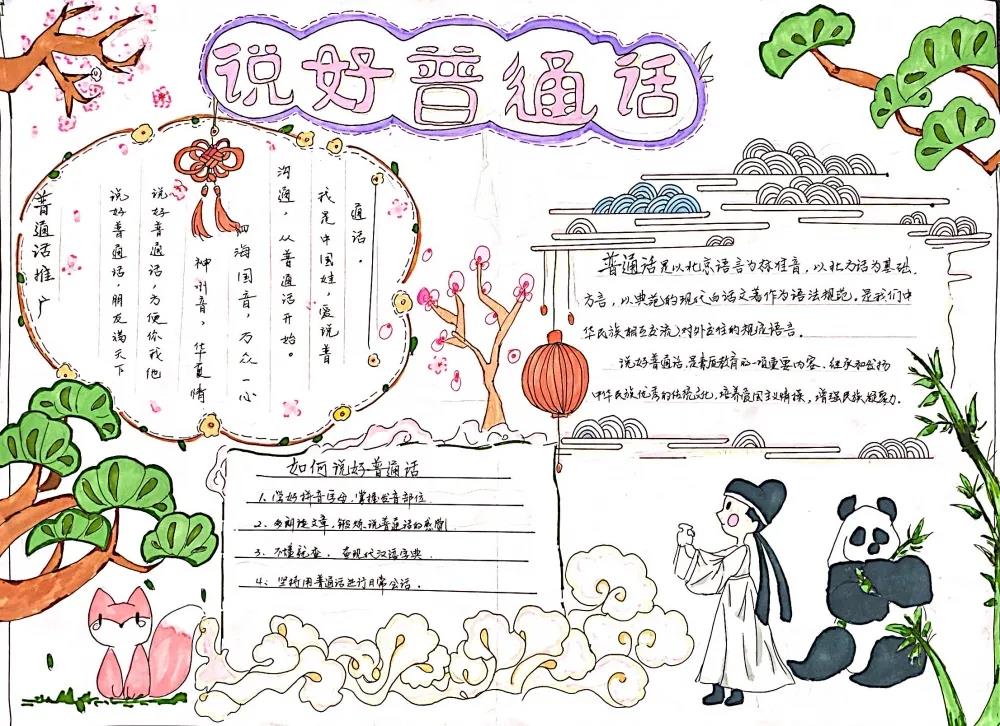 说好普通话
普通话推广
说好普通话,朋友满天下
说好普通话,方便你我他
神州音,华夏情
四海国音,万众一心
沟通,从普通话开始。
我是中国娃,爱说普
通话。
普通话是以北京语言为标准音,以北方话为基础
方言,以典范的现代白话文著作为语法规范。是我们中
华民族相互交流对外交往的规定语言.
说好普通话,是素质教育的一项重要内容、继承和发扬
中华民族优秀的传统文化,培养爱国主义情操,增强民族凝聚力.
如何说好普通话
1、学好拼音字母,掌握发音部位
2、多朗读文章,锻炼说普通话的感觉
3、不懂就查,查现代汉语字典.
4、坚持用普通话进行日常会话.